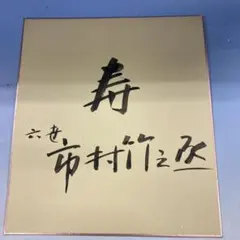 寿
六世
市村竹之丞